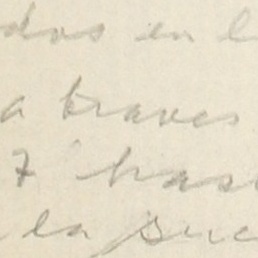 dos en l
a traves
7 hast
la suc